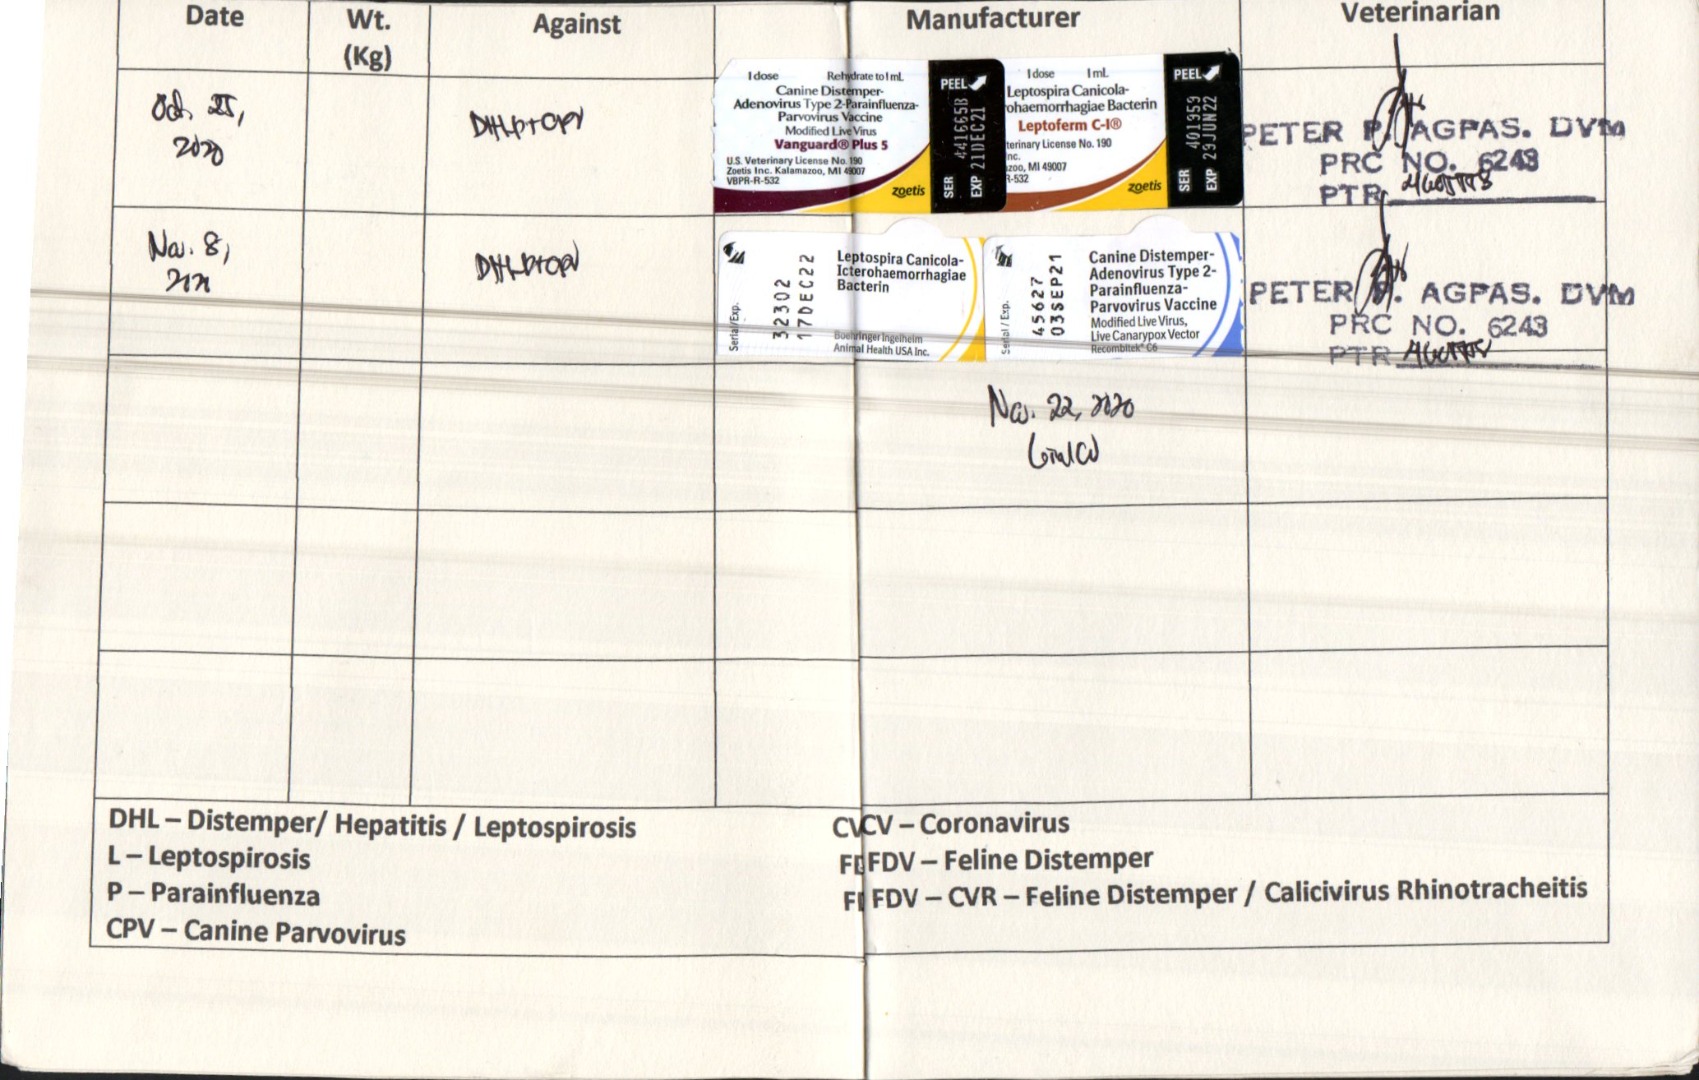 Date
Wt.
(Kg)
Against
Manufacturer
Veterinarian
Oct. 25,
2020
1 dose Rehydrate to 1 mL
Canine Distemper-
Adenovirus Type 2-Parainfluenza-
Parvovirus Vaccine
Modified Live Virus
Vanguard® Plus 5
U.S. Veterinary License No. 190
Zoetis Inc. Kalamazoo, MI 49007
VBPR-R-532
zoetis
PEEL
SER 441665B
EXP 21DEC21
1 dose 1 mL
Leptospira Canicola-
ohaemorrhagiae Bacterin
Leptoferm C-I®
terinary License No. 190
nc.
zoo, MI 49007
R-532
zoetis
PEEL
SER 401359
EXP 29JUN22
PETER P. AGPAS. DVM
PRC NO. 6243
PTR
Nov. 8,
Leptospira Canicola-
Icterohaemorrhagiae
Bacterin
Serial/Exp.
32302
17DEC22
Boehringer Ingelheim
Animal Health USA Inc.
Canine Distemper-
Adenovirus Type 2-
Parainfluenza-
Parvovirus Vaccine
Modified Live Virus,
Live Canarypox Vector
Recombitek® C6
Serial / Exp.
45627
03SEP21
PETER P. AGPAS. DVM
PRC NO. 6243
PTR
Nov. 22, 2020
DHL – Distemper/ Hepatitis / Leptospirosis
L – Leptospirosis
P – Parainfluenza
CPV – Canine Parvovirus
CV CV – Coronavirus
FD FDV – Feline Distemper
FD FDV – CVR – Feline Distemper / Calicivirus Rhinotracheitis